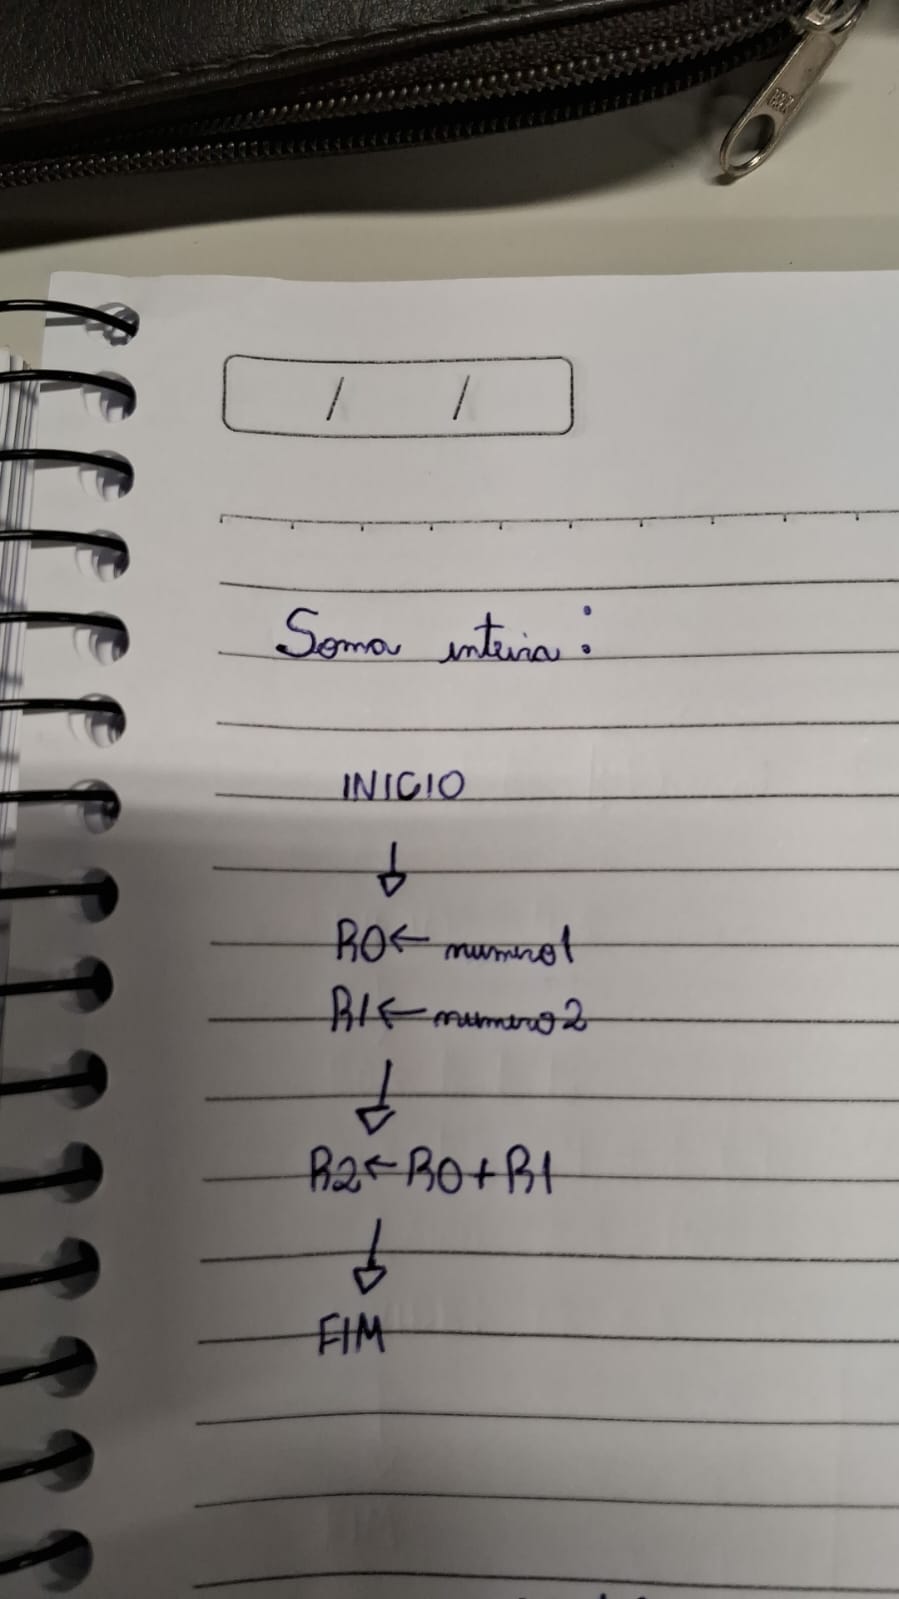 / /
Soma inteira:
INICIO
↓
R0← numero1
R1← numero2
↓
R2← R0+R1
↓
FIM